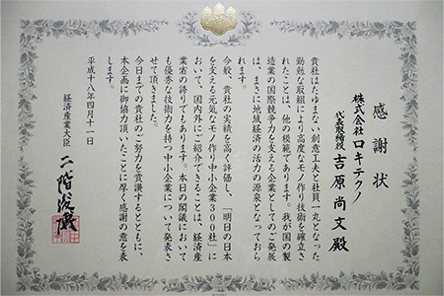 感謝状
株式会社ロキテクノ
代表取締役 吉原尚文殿
貴社はたゆまない創意工夫と社員一丸となった
勤勉な取組により高度なモノ作り技術を確立さ
れたことは、他の模範であります。我が国の製
造業の国際競争力を支える企業としてのご発展
は、まさに地域経済の活力の源泉となっておら
れます。
今般、貴社の実績を高く評価し、「明日の日本
を支える元気なモノ作り中小企業300社」に
おいて、国内外にご紹介できることは、経済産
業省の誇りでもあります。本日の閣議において
も優秀な技術力を持つ中小企業について発表さ
せて頂きました。
今日までの貴社のご努力を賞讃するとともに、
本企画に御協力頂いたことに厚く感謝の意を表
します。
平成十八年四月十一日
経済産業大臣
二階俊博